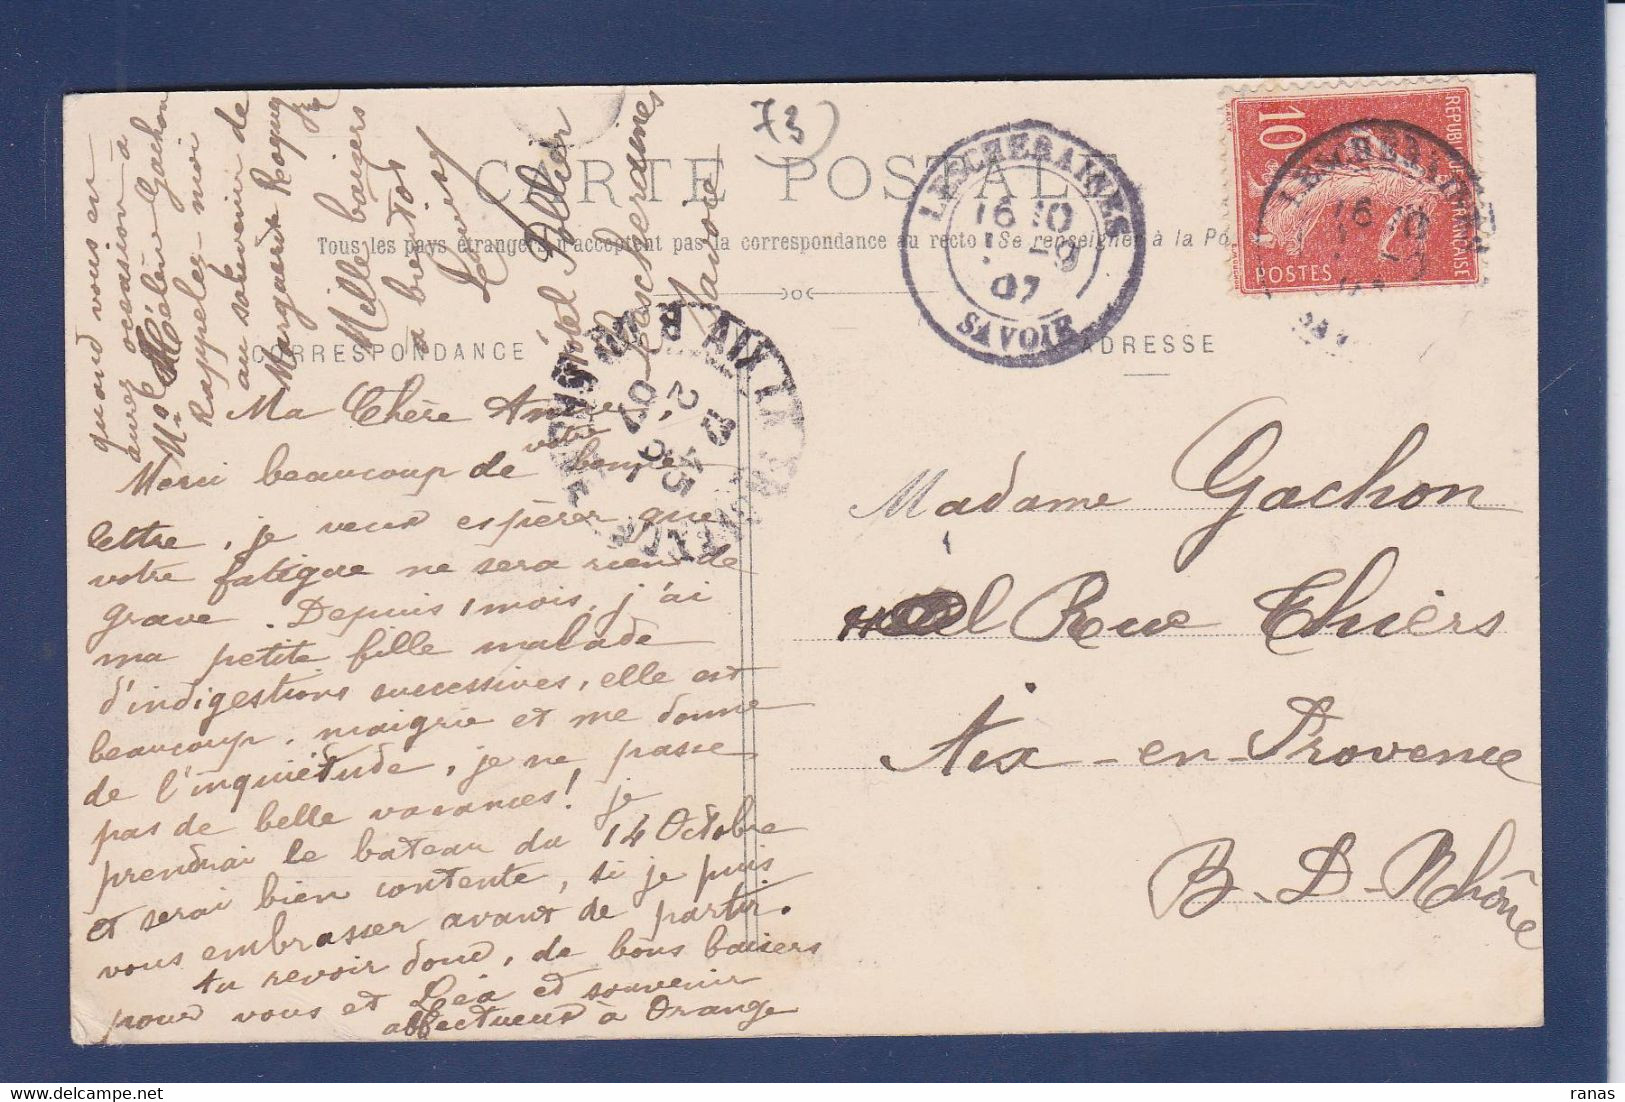 73
CARTE POSTALE
Tous les pays étrangers n'acceptent pas la correspondance au recto (Se renseigner à la Po
CORRESPONDANCE
ADRESSE
LESCHERAINES
16 10
1 -9
07
SAVOIE
10
REPUBLIQUE FRANÇAISE
POSTES
LESCHERAINES
16 10
AIX
2 -9
07
Ma Chère
Merci beaucoup de votre bonne
lettre, je veux espérer que
votre fatigue ne sera rien de
grave. Depuis 1 mois, j'ai
ma petite fille malade
d'indigestions successives, elle est
beaucoup maigrie et me donne
de l'inquiétude, je ne passe
pas de belle vacances! je
prendrai le bateau du 14 Octobre
et serai bien contente, si je puis
vous embrasser avant de partir.
au revoir donc, de bons baisers
pour vous et Léa et souvenir
affectueux à Orange
quand vous en
aurez occasion à
Mme Hélène Gachon
Rappelez-moi
au souvenir de
Marguerite
Mille baisers
à
Louise
Hotel Pollier
Lescheraines
Savoie
Madame Gachon
Rue Thiers
Aix-en-Provence
B-D-Rhône
ranas